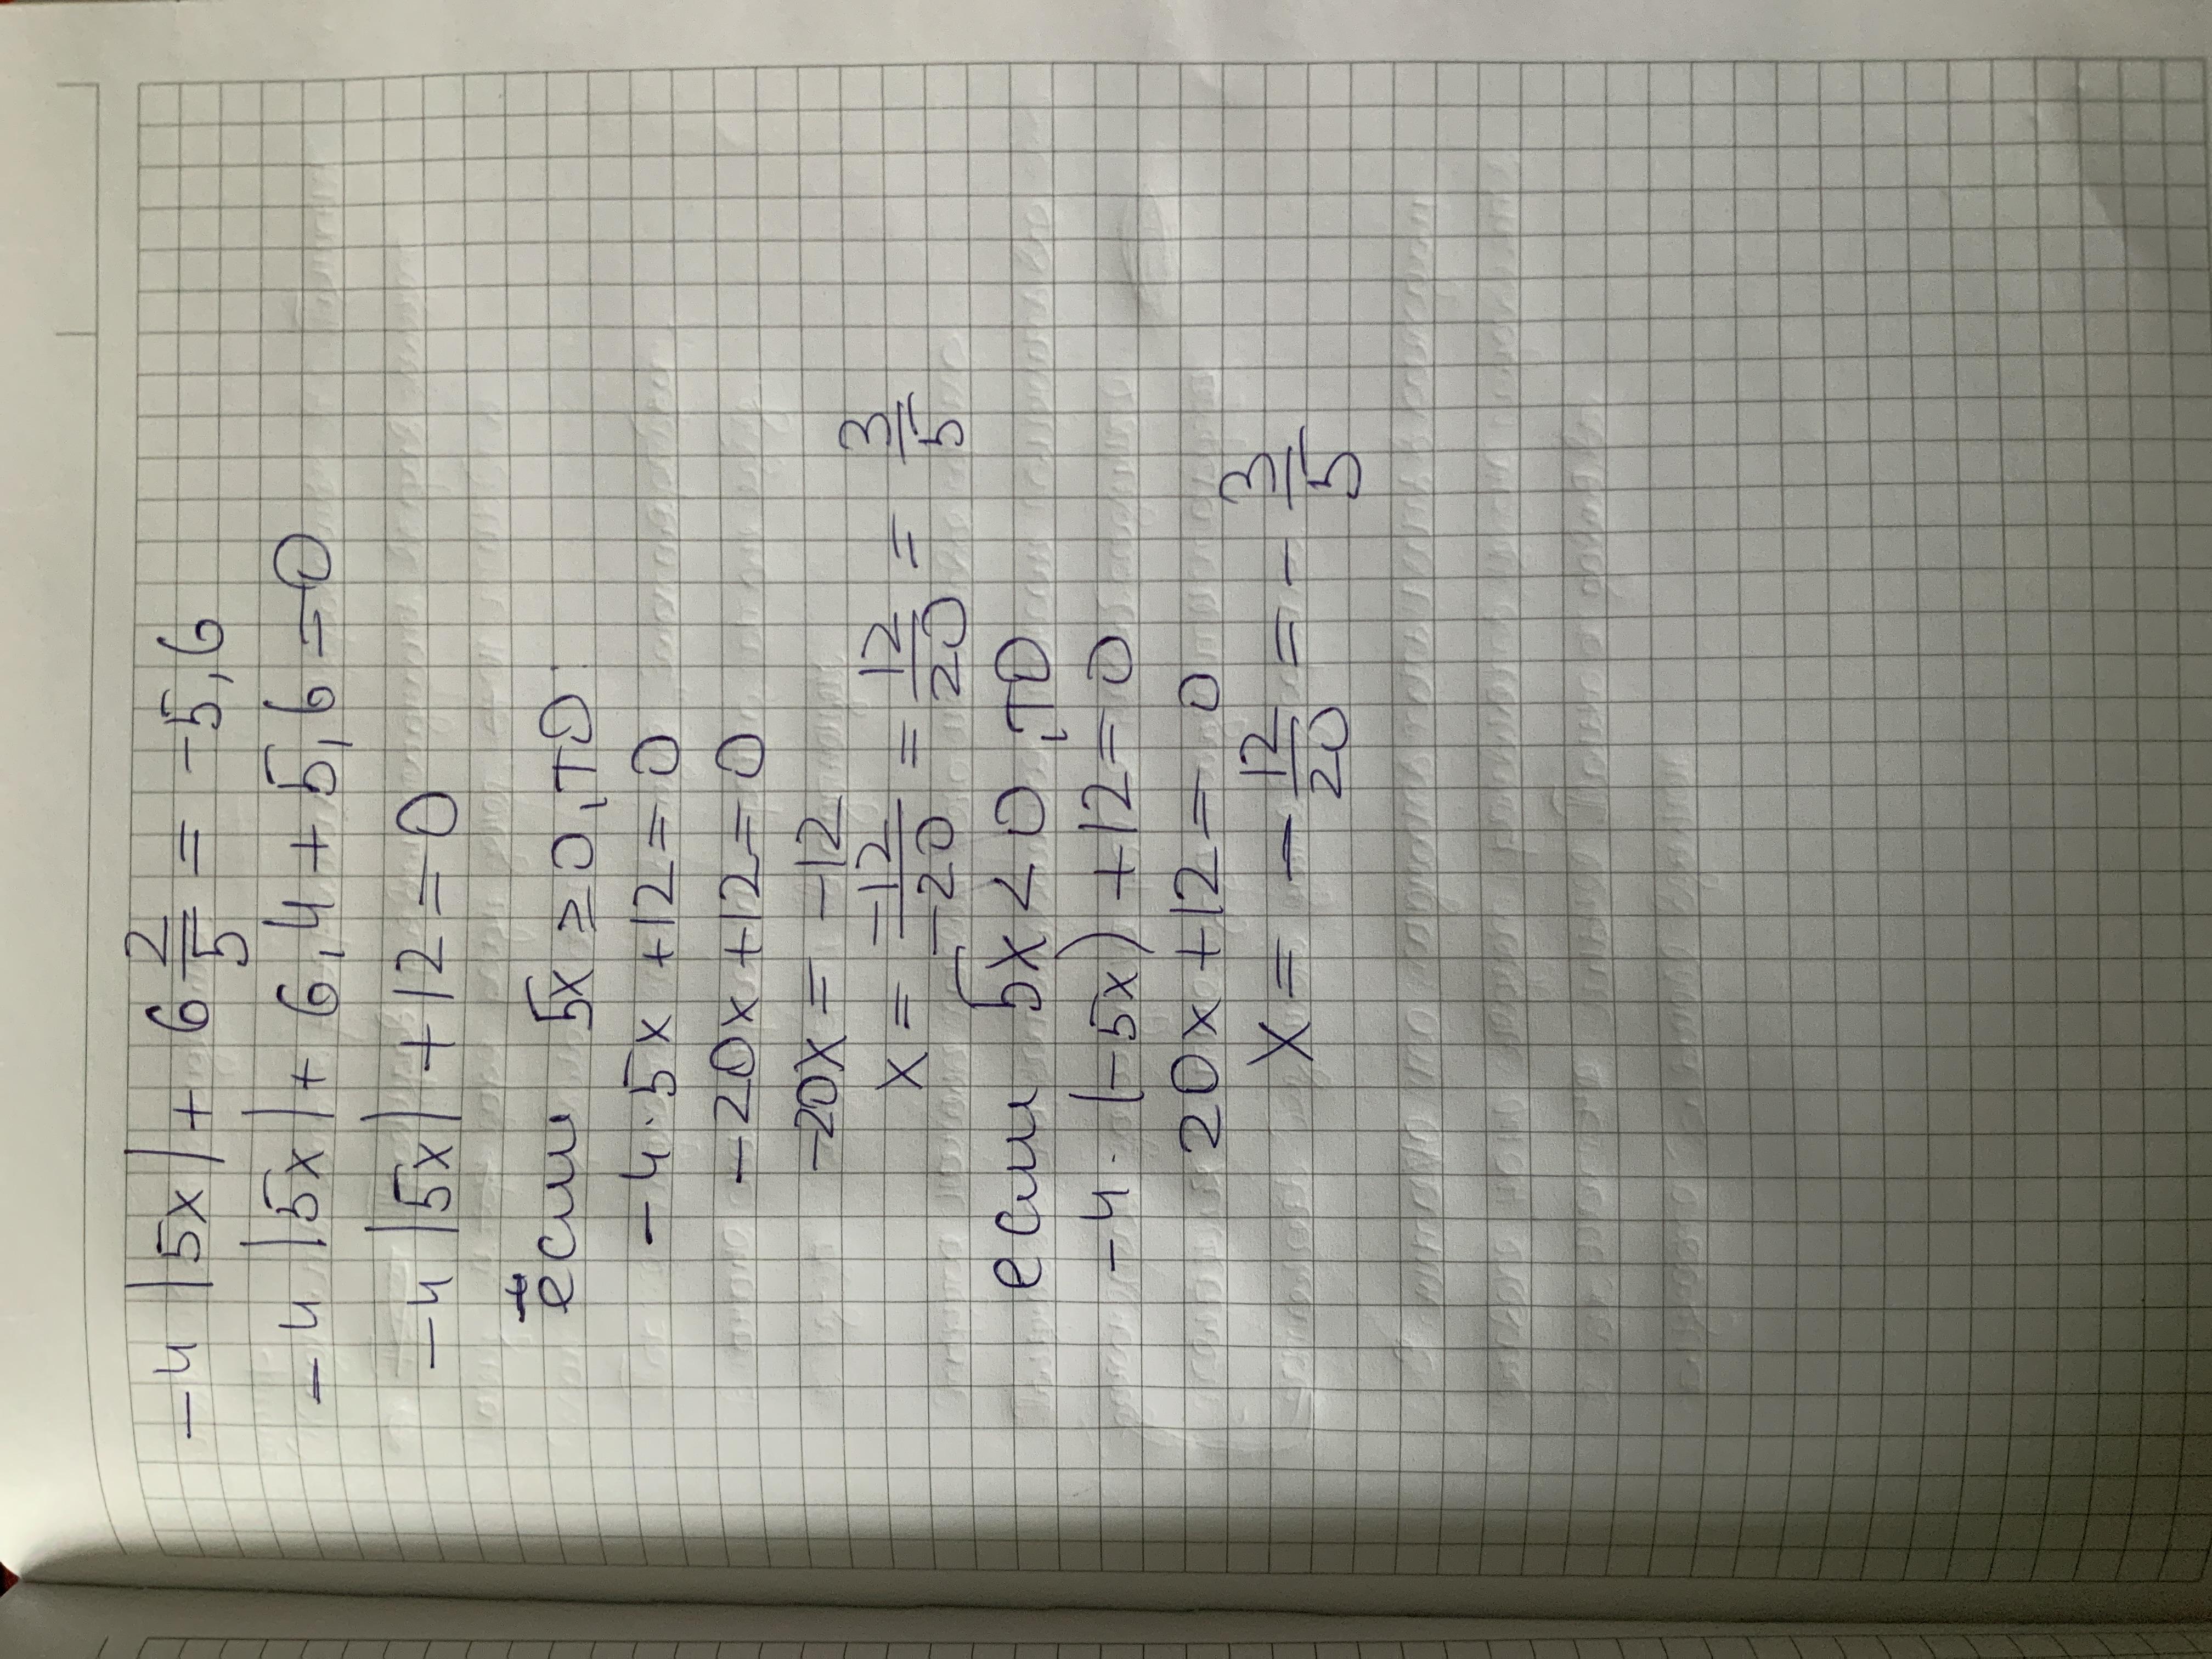 -4|5x| + 6 2/5 = -5,6
-4|5x| + 6,4 + 5,6 = 0
-4|5x| + 12 = 0
если 5x ≥ 0, то:
-4·5x + 12 = 0
-20x + 12 = 0
-20x = -12
x = -12/-20 = 12/20 = 3/5
если 5x < 0, то
-4·(-5x) + 12 = 0
20x + 12 = 0
x = -12/20 = -3/5